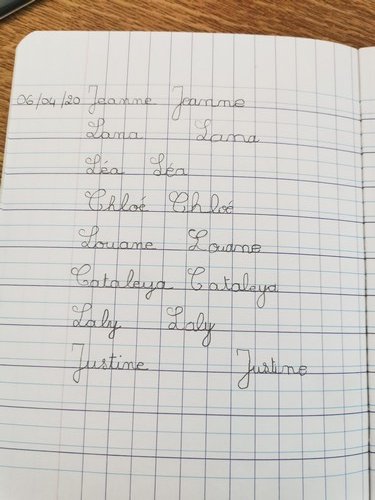 06/04/20 Jeanne Jeanne
Lana Lana
Léa Léa
Chloé Chloé
Louane Louane
Cataleya Cataleya
Laly Laly
Justine Justine